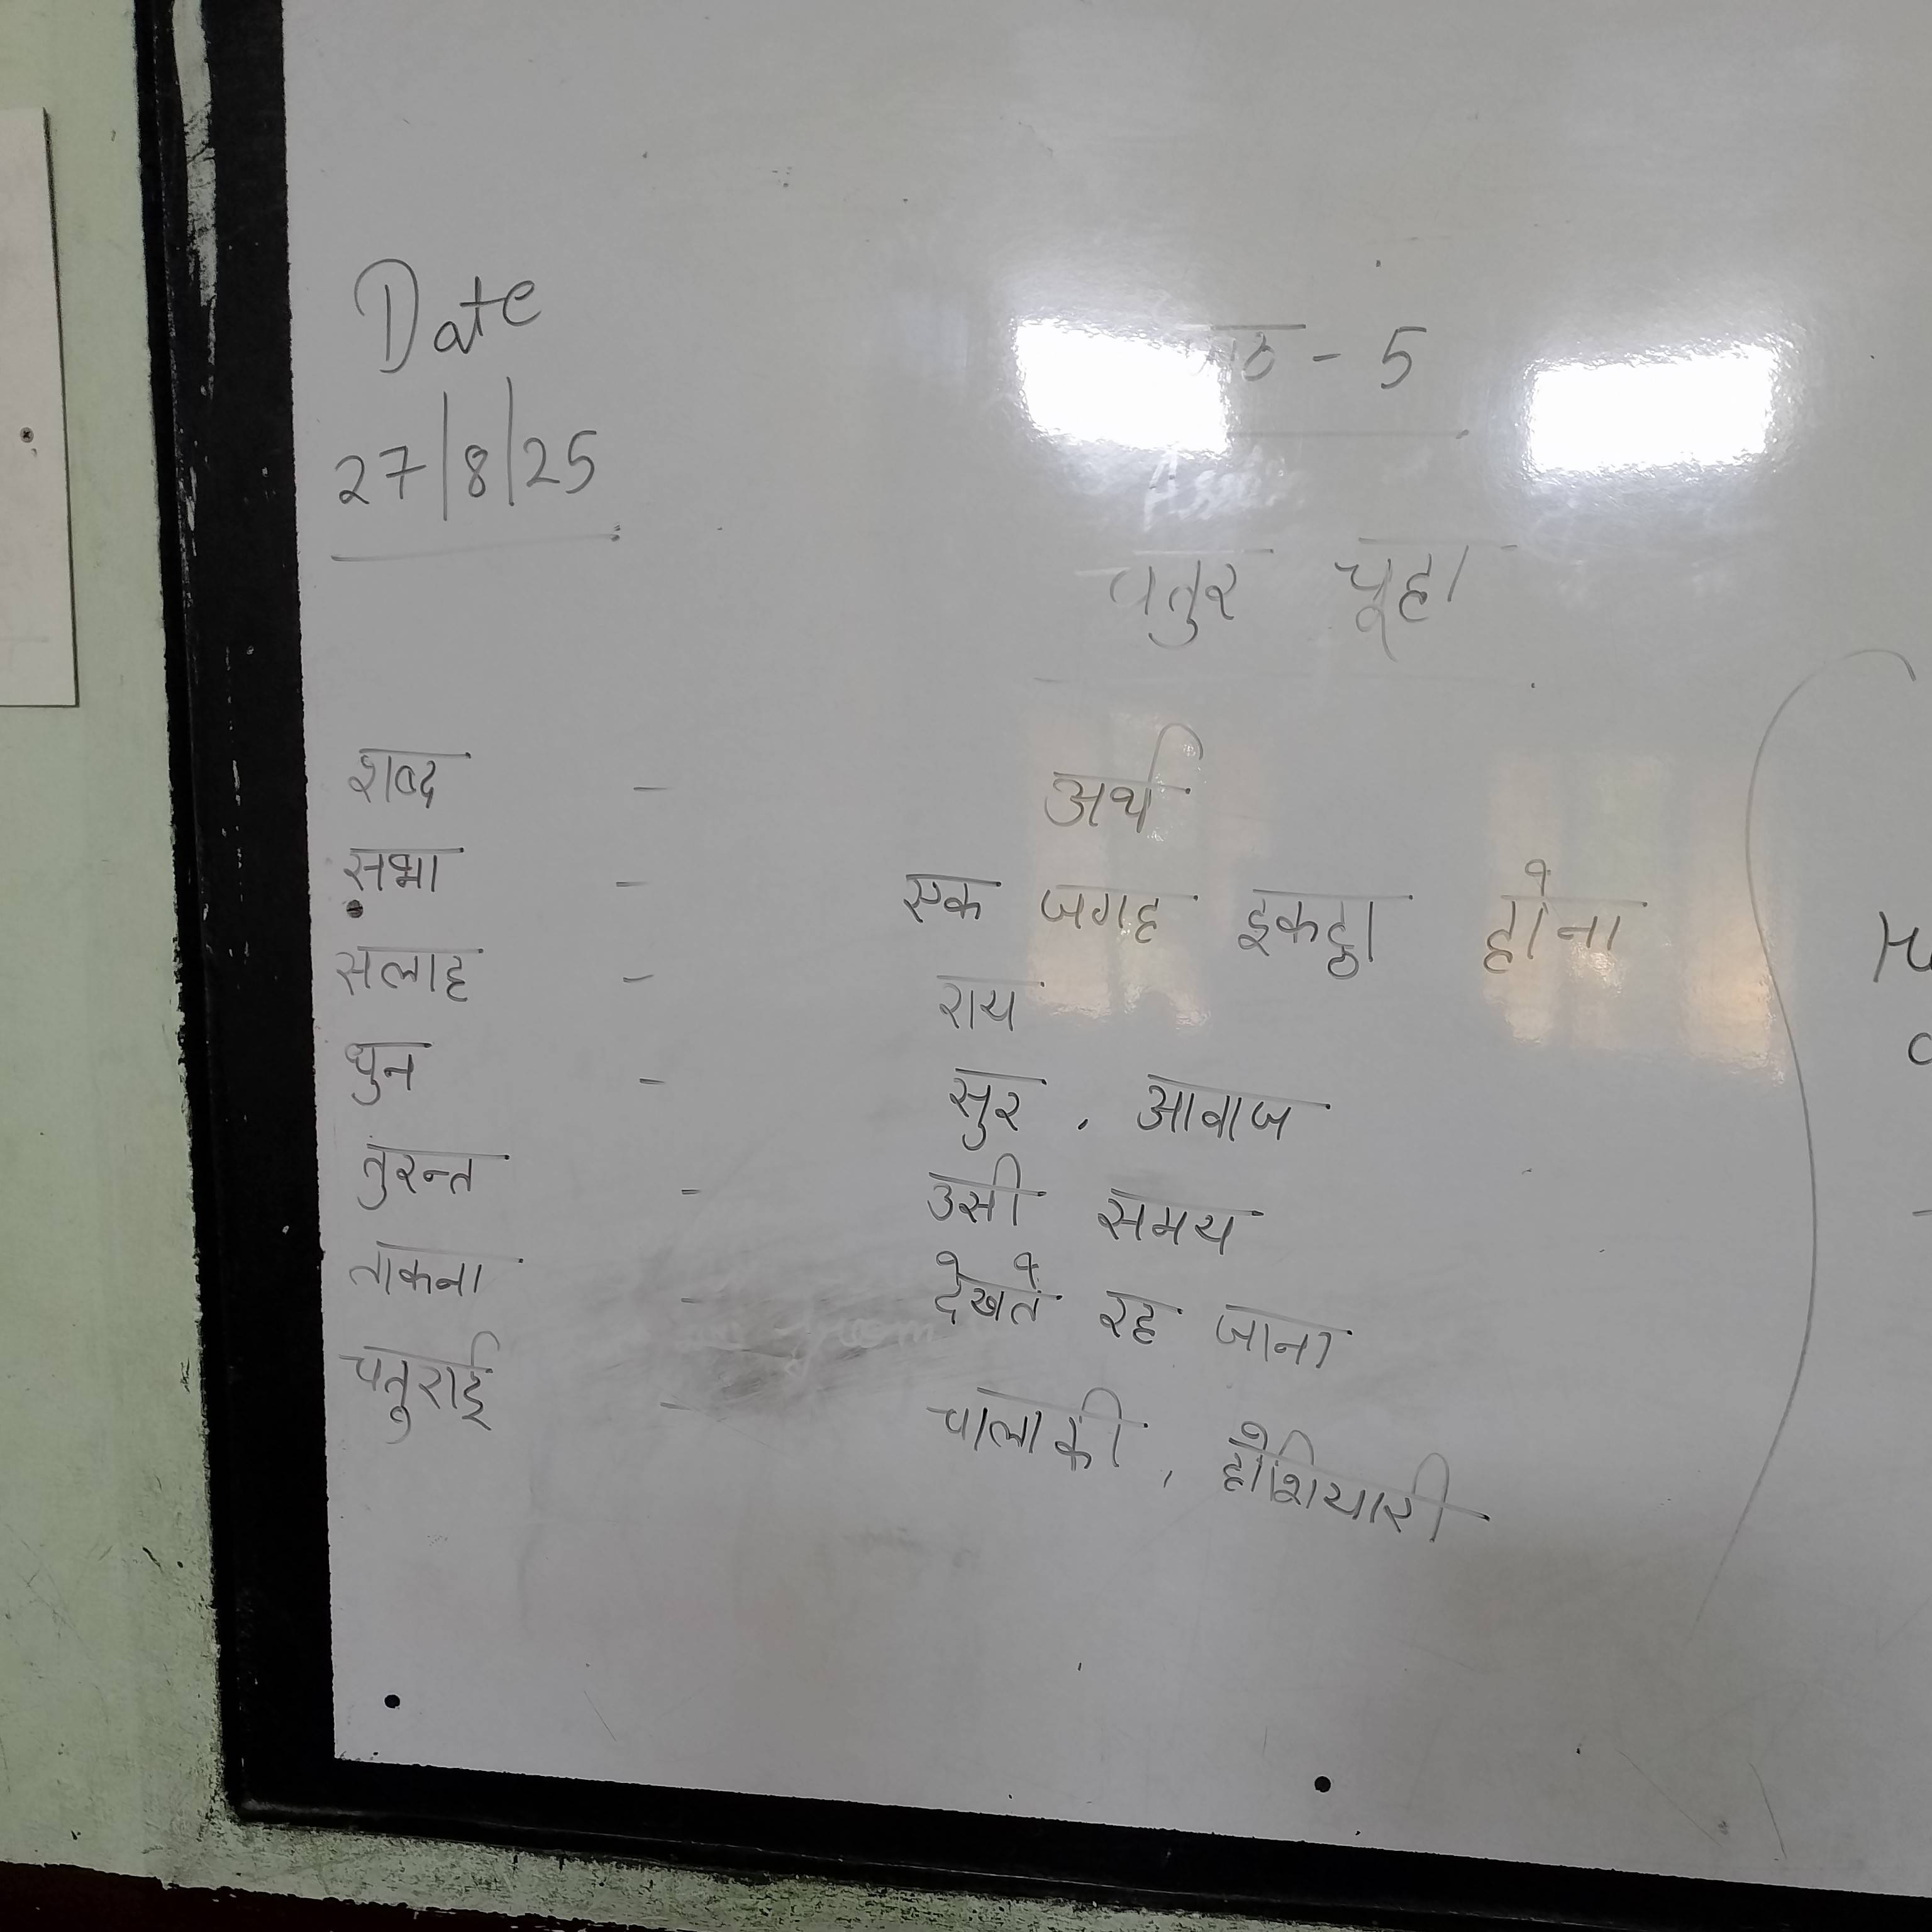 Date
27/8/25
पाठ - 5
चतुर चूहा
शब्द - अर्थ
सभा - एक जगह इकट्ठा होना
सलाह - राय
धुन - सुर , आवाज
तुरन्त - उसी समय
ताकना - देखते रह जाना
चतुराई - चालाकी , होशियारी